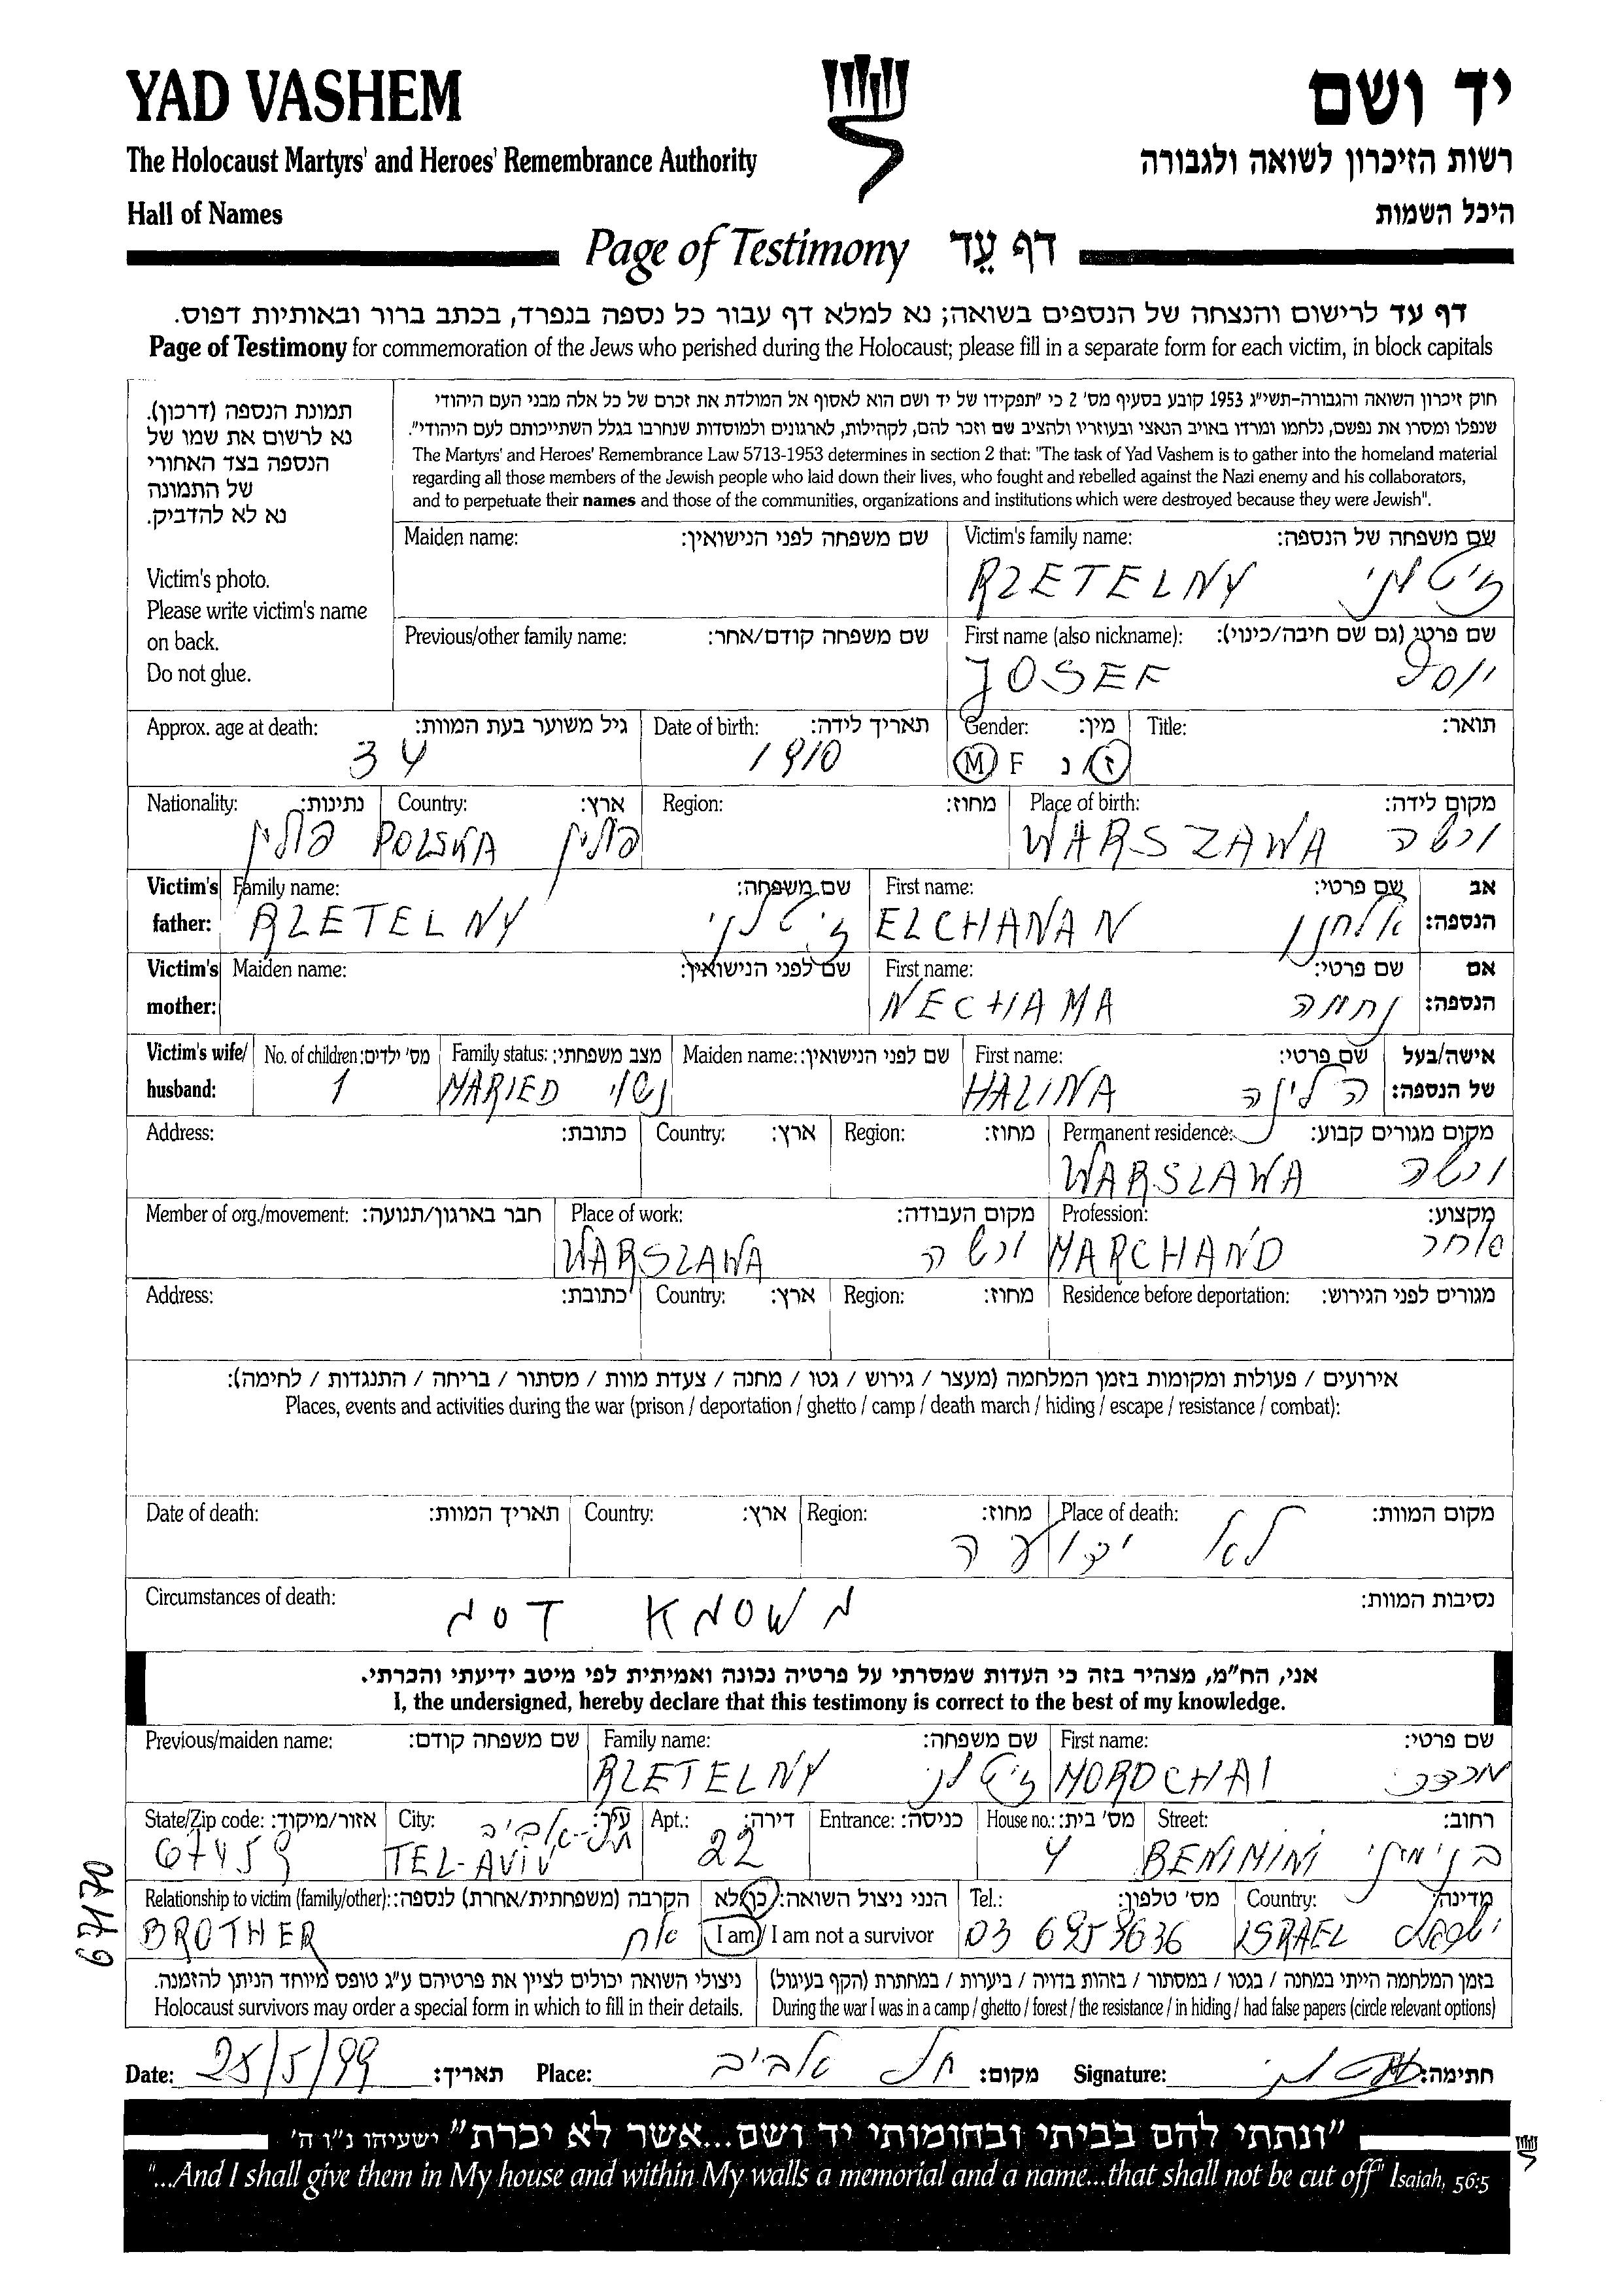 YAD VASHEM
יד ושם
The Holocaust Martyrs' and Heroes' Remembrance Authority
רשות הזיכרון לשואה ולגבורה
Hall of Names
היכל השמות
Page of Testimony דף עֵד
דף עד לרישום והנצחה של הנספים בשואה; נא למלא דף עבור כל נספה בנפרד, בכתב ברור ובאותיות דפוס.
Page of Testimony for commemoration of the Jews who perished during the Holocaust; please fill in a separate form for each victim, in block capitals
תמונת הנספה (דרכון).
נא לרשום את שמו של
הנספה בצד האחורי
של התמונה
נא לא להדביק.
Victim's photo.
Please write victim's name
on back.
Do not glue.
חוק זיכרון השואה והגבורה-תשי"ג 1953 קובע בסעיף מס' 2 כי "תפקידו של יד ושם הוא לאסוף אל המולדת את זכרם של כל אלה מבני העם היהודי
שנפלו ומסרו את נפשם, נלחמו ומרדו באויב הנאצי ובעוזריו ולהציב שם וזכר להם, לקהילות, לארגונים ולמוסדות שנחרבו בגלל השתייכותם לעם היהודי".
The Martyrs' and Heroes' Remembrance Law 5713-1953 determines in section 2 that: "The task of Yad Vashem is to gather into the homeland material
regarding all those members of the Jewish people who laid down their lives, who fought and rebelled against the Nazi enemy and his collaborators,
and to perpetuate their names and those of the communities, organizations and institutions which were destroyed because they were Jewish".
Maiden name: שם משפחה לפני הנישואין: Victim's family name: שם משפחה של הנספה:
RZETELNY
Previous/other family name: שם משפחה קודם/אחר: First name (also nickname): שם פרטי (גם שם חיבה/כינוי):
JOSEF יוסף
Approx. age at death: גיל משוער בעת המוות: Date of birth: תאריך לידה: Gender: מין: Title: תואר:
34 1910 M F ז / נ
Nationality: נתינות: Country: ארץ: Region: מחוז: Place of birth: מקום לידה:
פולין POLSKA פולין WARSZAWA ורשה
Victim's father: Family name: שם משפחה: First name: שם פרטי: אב הנספה:
RZETELNY ELCHANAN אלחנן
Victim's mother: Maiden name: שם לפני הנישואין: First name: שם פרטי: אם הנספה:
NECHAMA נחמה
Victim's wife/ husband: No. of children: מס' ילדים: Family status: מצב משפחתי: Maiden name: שם לפני הנישואין: First name: שם פרטי: אישה/בעל של הנספה:
1 MARIED נשוי HALINA הלינה
Address: כתובת: Country: ארץ: Region: מחוז: Permanent residence: מקום מגורים קבוע:
WARSZAWA ורשה
Member of org./movement: חבר בארגון/תנועה: Place of work: מקום העבודה: Profession: מקצוע:
WARSZAWA ורשה MARCHAND סוחר
Address: כתובת: Country: ארץ: Region: מחוז: Residence before deportation: מגורים לפני הגירוש:
אירועים / פעולות ומקומות בזמן המלחמה (מעצר / גירוש / גטו / מחנה / צעדת מוות / מסתור / בריחה / התנגדות / לחימה):
Places, events and activities during the war (prison / deportation / ghetto / camp / death march / hiding / escape / resistance / combat):
Date of death: תאריך המוות: Country: ארץ: Region: מחוז: Place of death: מקום המוות:
לא ידועה
Circumstances of death: נסיבות המוות:
NOT KNOWN
אני, הח"מ, מצהיר בזה כי העדות שמסרתי על פרטיה נכונה ואמיתית לפי מיטב ידיעתי והכרתי.
I, the undersigned, hereby declare that this testimony is correct to the best of my knowledge.
Previous/maiden name: שם משפחה קודם: Family name: שם משפחה: First name: שם פרטי:
RZETELNY MORDCHAI מרדכי
State/Zip code: אזור/מיקוד: City: עיר: Apt.: דירה: Entrance: כניסה: House no.: מס' בית: Street: רחוב:
67459 TEL-AVIV תל-אביב 22 4 BENIMINI בנימיני
Relationship to victim (family/other): הקרבה (משפחתית/אחרת) לנספה: הנני ניצול השואה: כן/לא Tel.: מס' טלפון: Country: מדינה:
BROTHER אח I am / I am not a survivor 03 ISRAEL ישראל
67170
ניצולי השואה יכולים לציין את פרטיהם ע"ג טופס מיוחד הניתן להזמנה.
Holocaust survivors may order a special form in which to fill in their details.
בזמן המלחמה הייתי במחנה / בגטו / במסתור / בזהות בדויה / ביערות / במחתרת (הקף בעיגול)
During the war I was in a camp / ghetto / forest / the resistance / in hiding / had false papers (circle relevant options)
Date: 25/5/99 תאריך: Place: תל אביב מקום: Signature: חתימה:
"ונתתי להם בביתי ובחומותי יד ושם...אשר לא יכרת" ישעיהו נ"ו ה'
"...And I shall give them in My house and within My walls a memorial and a name...that shall not be cut off" Isaiah, 56:5